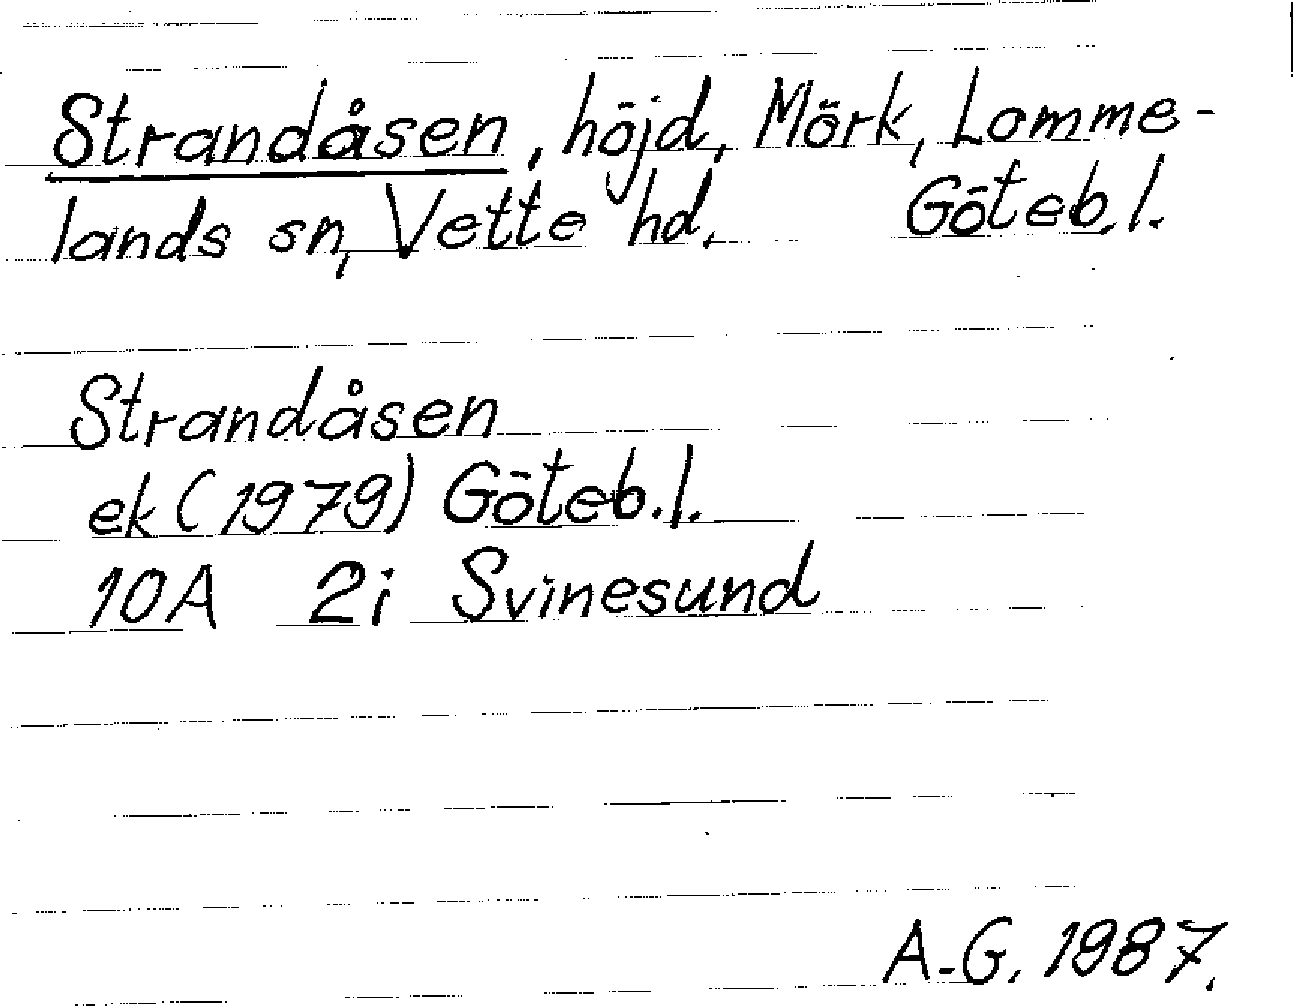 Strandåsen, höjd, Mörk, Lomme-
lands sn, Vette hd, Göteb.l.
Strandåsen
ek (1979) Göteb.l.
10A 2i Svinesund
A-G. 1987.